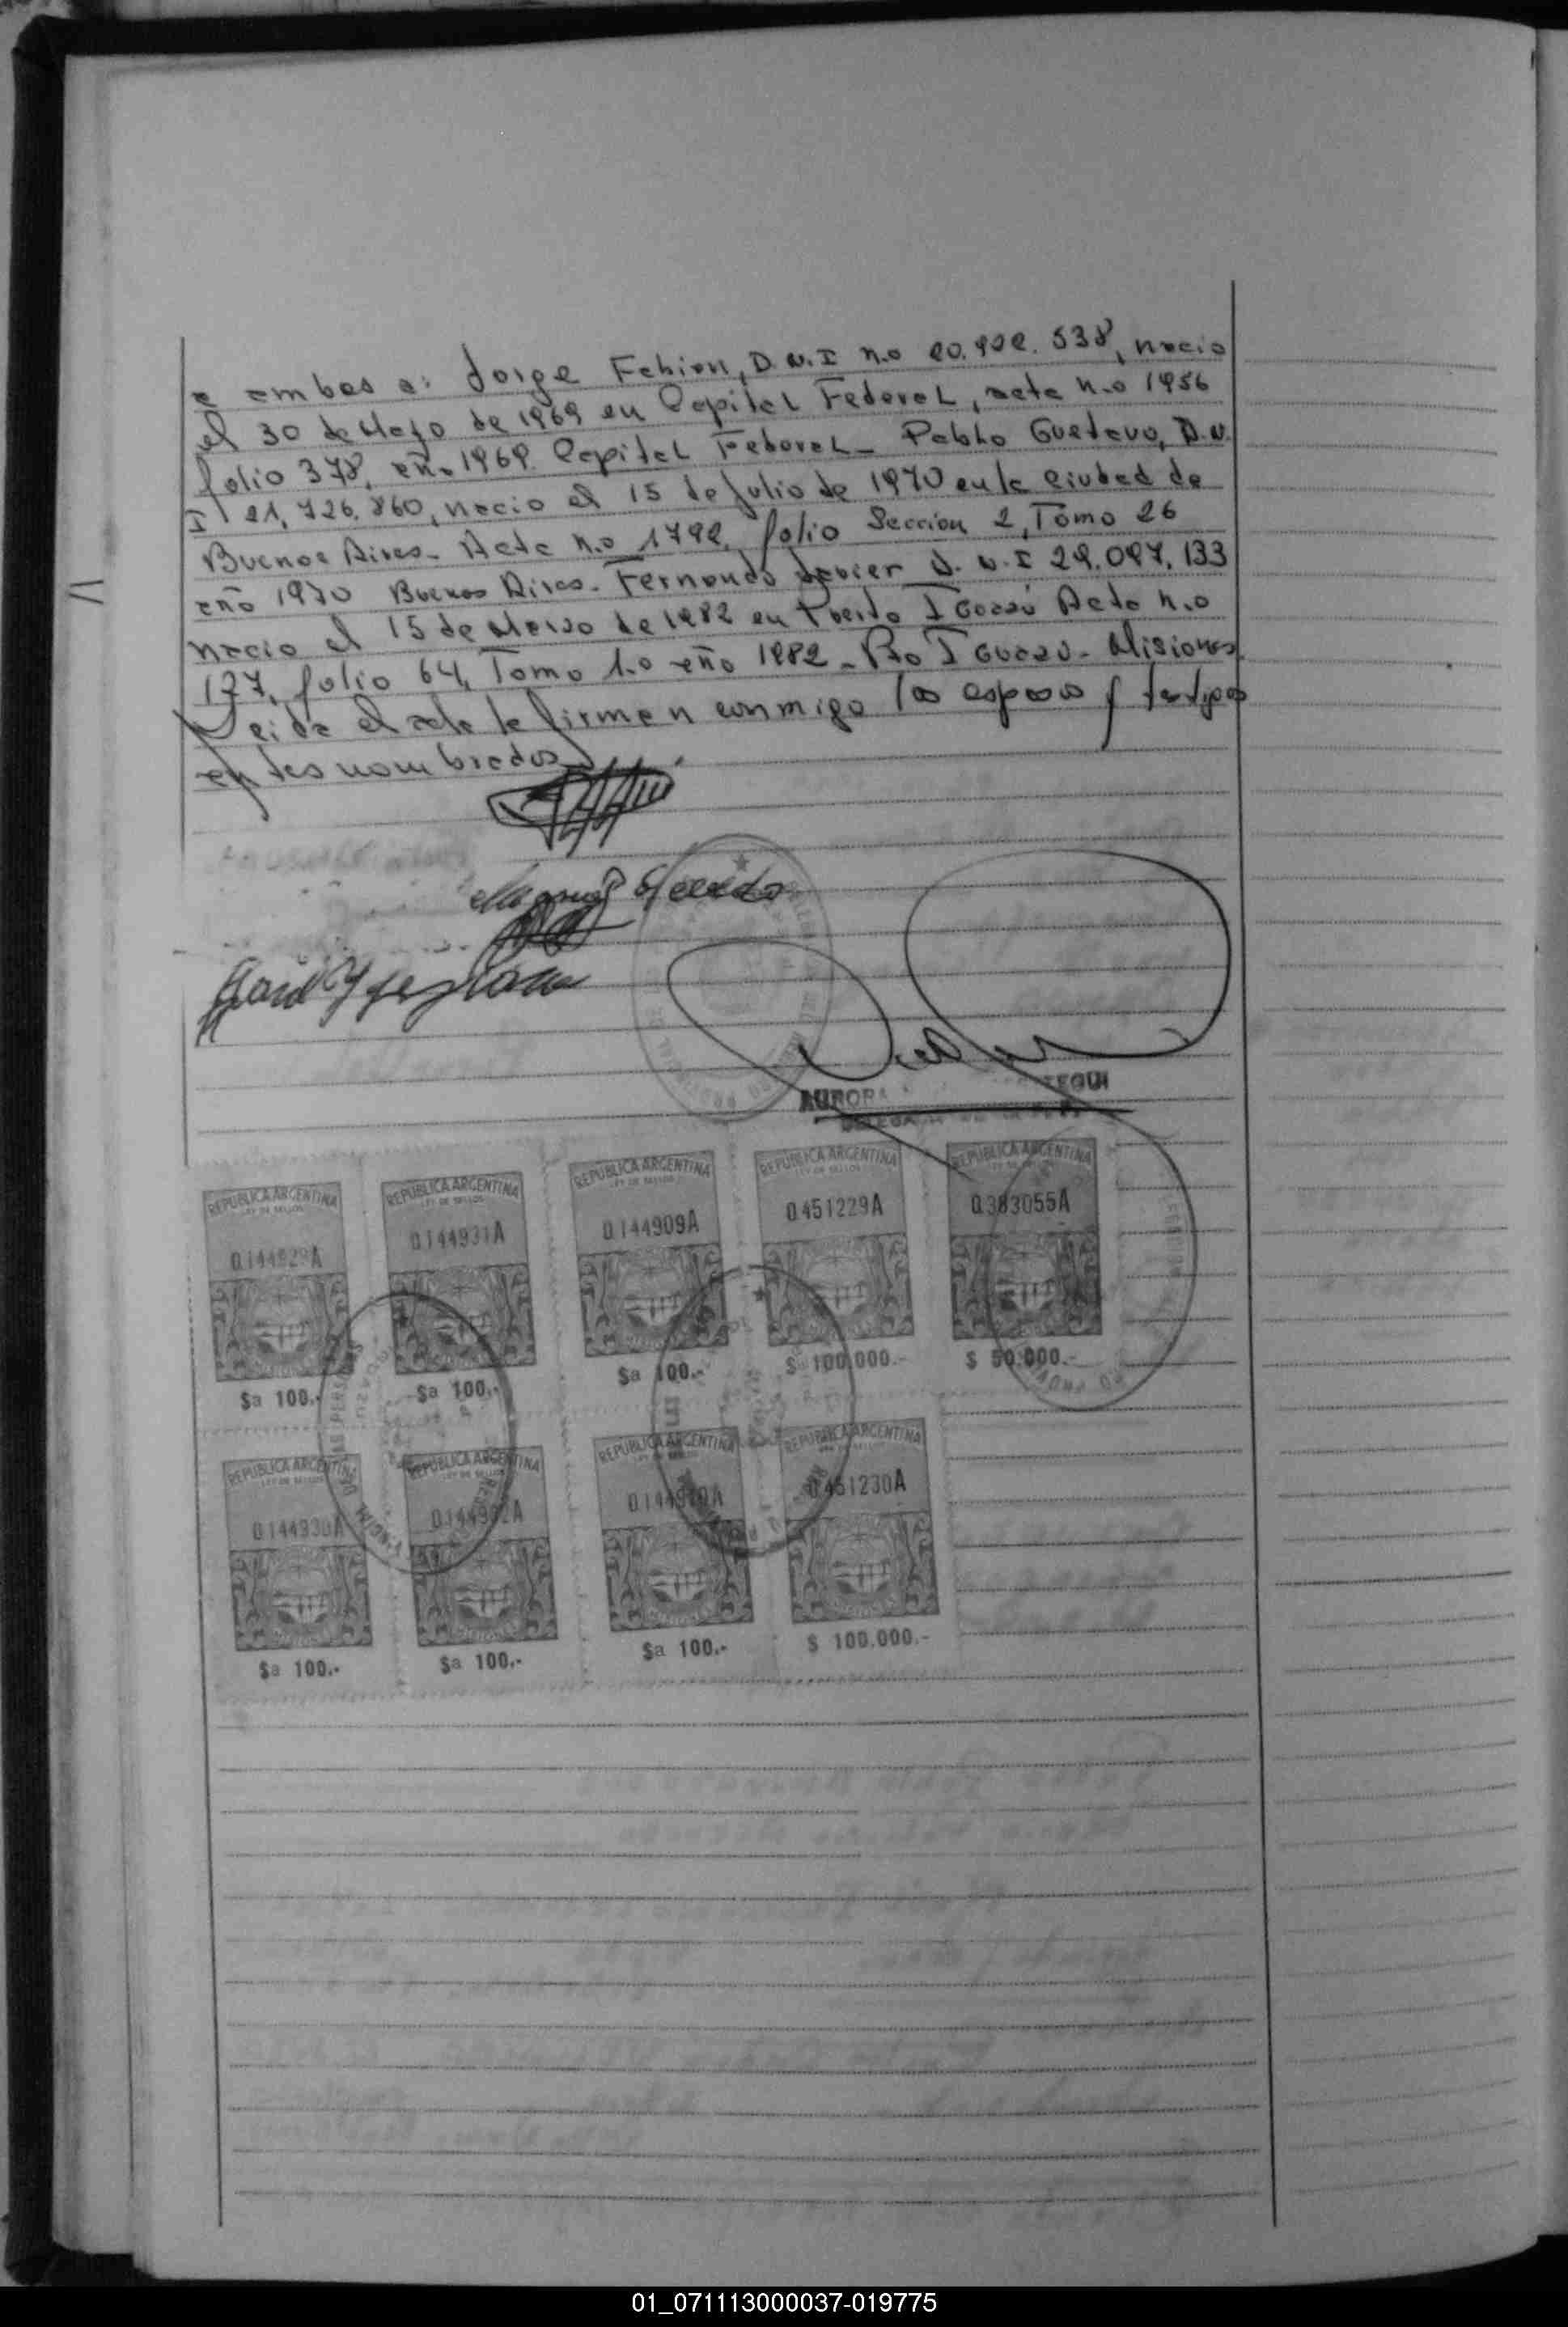 a ambos a: Jorge Fabian, D.N.I n.o 20.922.538, nacio
el 30 de Mayo de 1969 en Capital Federal, acta n.o 1956
folio 378, año 1969. Capital Federal_ Pablo Gustavo, D.N.
I 21,726.860, nacio el 15 de Julio de 1970 en la Ciudad de
Buenos Aires_ Acta n.o 1792, folio Seccion 2, Tomo 26
año 1970 Buenos Aires_ Fernando Javier D.N.I 29.097.133
nacio el 15 de Marzo de 1982 en Puerto Iguazú Acta n.o
127, folio 64, Tomo 1.o año 1982_ Pto Iguazu_ Misiones
Leida el acta la firman conmigo los esposos y testigos
antes nombrados
AURORA TEGUI
REPUBLICA ARGENTINA
LEY DE SELLOS
REPUBLICA ARGENTINA
LEY DE SELLOS
0.144931A
REPUBLICA ARGENTINA
LEY DE SELLOS
0.144909A
REPUBLICA ARGENTINA
LEY DE SELLOS
0.451229A
REPUBLICA ARGENTINA
0.383055A
$a 100.-
$a 100.-
$a 100.-
$ 100.000.-
$ 50.000.-
REPUBLICA ARGENTINA
LEY DE SELLOS
0.144930A
REPUBLICA ARGENTINA
LEY DE SELLOS
REPUBLICA ARGENTINA
LEY DE SELLOS
0.144910A
REPUBLICA ARGENTINA
LEY DE SELLOS
0.451230A
$a 100.-
$a 100.-
$a 100.-
$ 100.000.-
01_071113000037-019775